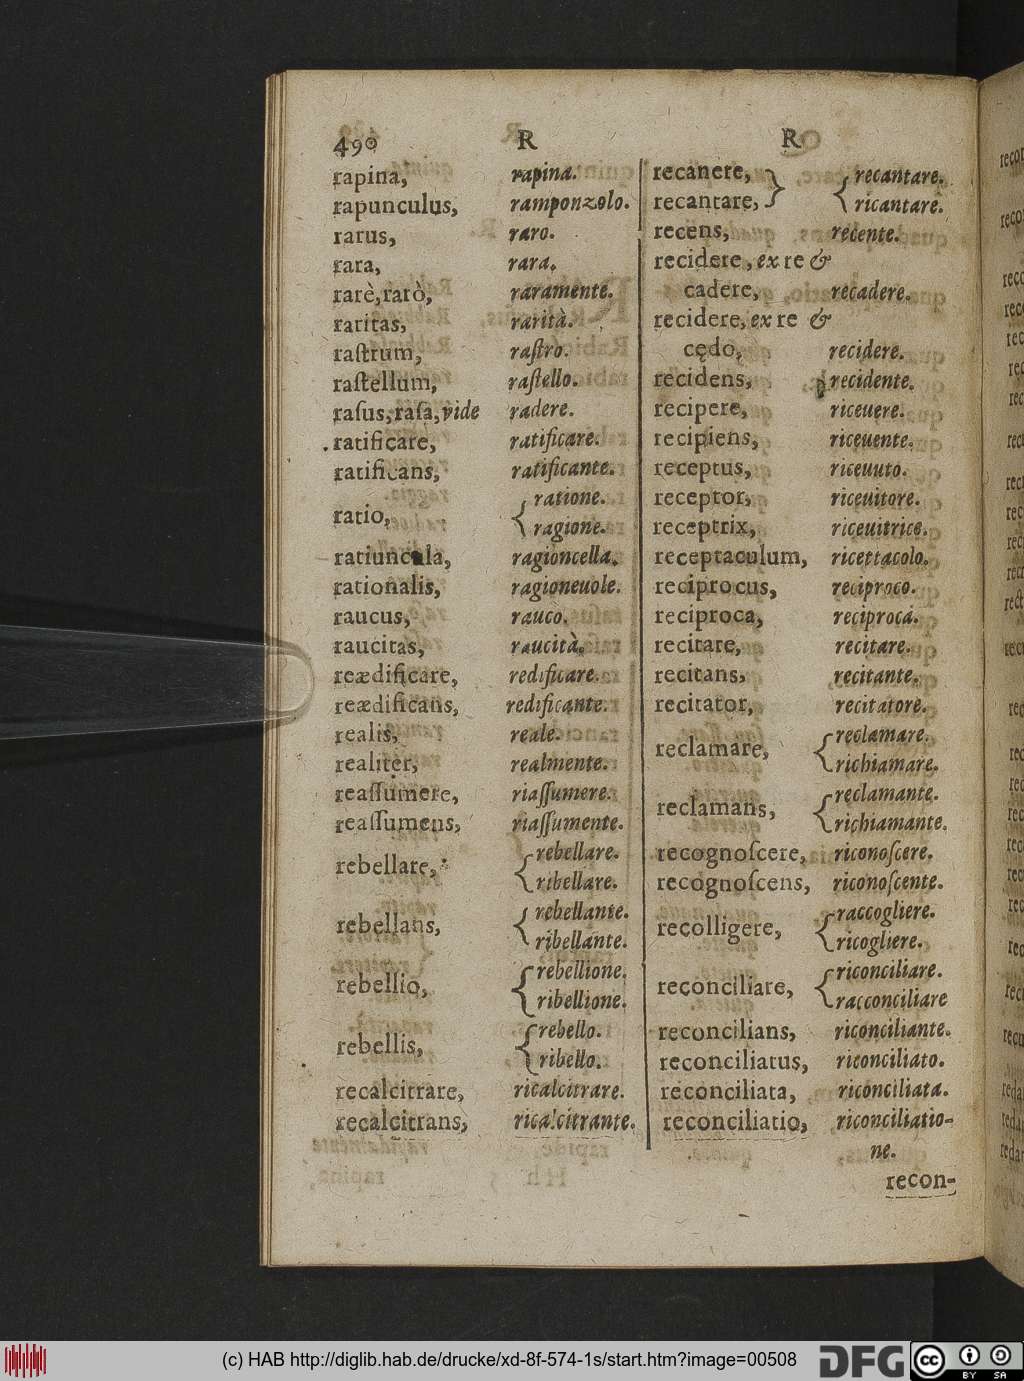 490 R R
rapina, rapina.
rapunculus, ramponzolo.
rarus, raro.
rara, rara.
rarè, rarò, raramente.
raritas, rarità.
raſtrum, raſtro.
raſtellum, raſtello.
raſus, raſa, vide radere.
ratificare, ratificare.
ratificans, ratificante.
ratio, { ratione.
ragione.
ratiuncula, ragioncella.
rationalis, ragioneuole.
raucus, rauco.
raucitas, raucità.
reædificare, redificare.
reædificans, redificante.
realis, reale.
realiter, realmente.
reaſſumere, riaſſumere.
reaſſumens, riaſſumente.
rebellare, { rebellare.
ribellare.
rebellans, { rebellante.
ribellante.
rebellio, { rebellione.
ribellione.
rebellis, { rebello.
ribello.
recalcitrare, ricalcitrare.
recalcitrans, ricalcitrante.
recanere, } { recantare.
recantare, ricantare.
recens, recente.
recidere, ex re &
cadere, recadere.
recidere, ex re &
cędo, recidere.
recidens, recidente.
recipere, riceuere.
recipiens, riceuente.
receptus, riceuuto.
receptor, riceuitore.
receptrix, riceuitrice.
receptaculum, ricettacolo.
reciprocus, reciproco.
reciproca, reciproca.
recitare, recitare.
recitans, recitante.
recitator, recitatore.
reclamare, { reclamare.
richiamare.
reclamans, { reclamante.
richiamante.
recognoſcere, riconoſcere.
recognoſcens, riconoſcente.
recolligere, { raccogliere.
ricogliere.
reconciliare, { riconciliare.
racconciliare
reconcilians, riconciliante.
reconciliatus, riconciliato.
reconciliata, riconciliata.
reconciliatio, riconciliatio-
ne.
recon-
(c) HAB http://diglib.hab.de/drucke/xd-8f-574-1s/start.htm?image=00508
DFG
cc BY SA